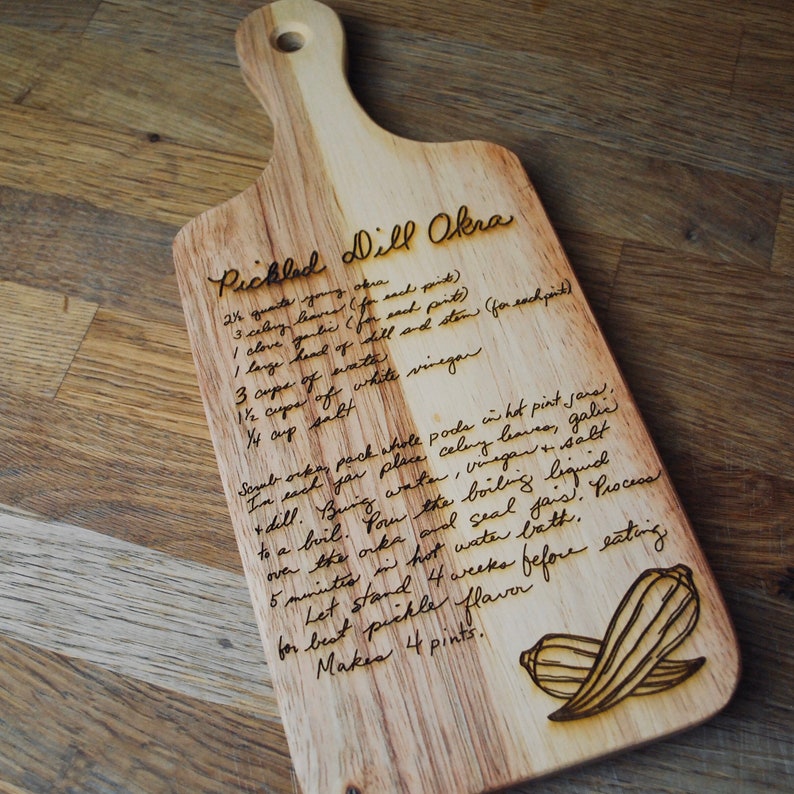 Pickled Dill Okra
2½ quarts young okra
3 celery leaves (for each pint)
1 clove garlic (for each pint)
1 large head of dill and stem (for each pint)
3 cups of water
1½ cups of white vinegar
¼ cup salt
Scrub okra, pack whole pods in hot pint jars.
In each jar place celery leaves, galic
& dill. Bring water, vinegar & salt
to a boil. Pour the boiling liquid
over the okra and seal jars. Process
5 minutes in hot water bath.
Let stand 4 weeks before eating
for best pickle flavor
Makes 4 pints.